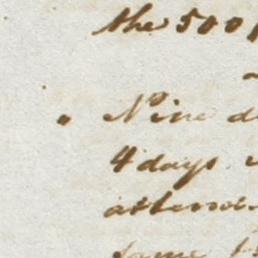 the 500
Nine d
4 days
attend
same